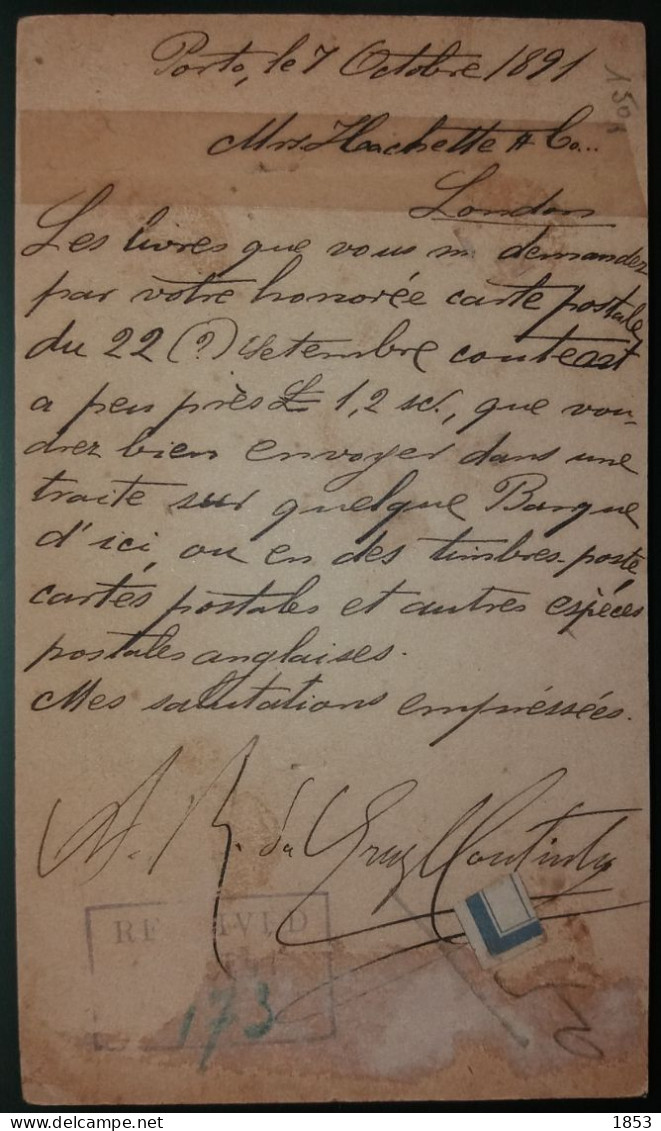 Porto, le 7 Octobre 1891
150
Mrs Hachette & Co...
London
Les livres que vous m demandez
par votre honorée carte postale
du 22 (?) Setembre couteast
a peu près £ 1,2 sc., que vou-
drez bien envoyer dans une
traite sur quelque Banque
d'ici, ou en des timbres-poste,
cartes postales et autres espèces
postales anglaises.
Mes salutations empréssées.
A. R. da Cruz Coutinho
173
1853